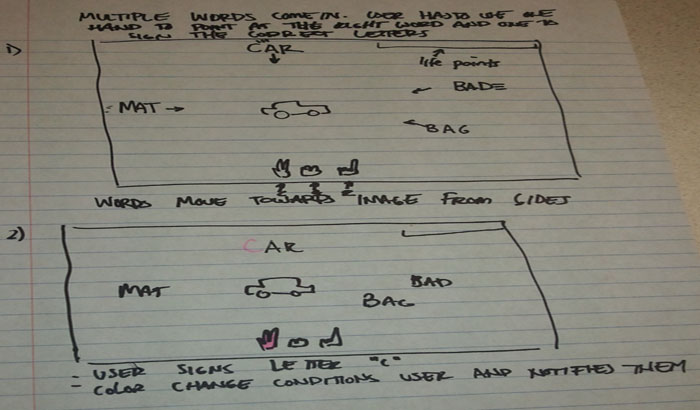 MULTIPLE WORDS COME IN. USER HAS TO USE ONE
HAND TO POINT AT THE RIGHT WORD AND ONE TO
SIGN THE CORRECT LETTERS
1)
CAR
life points
BADE
MAT
BAG
WORDS MOVE TOWARDS IMAGE FROM SIDES
2)
CAR
MAT
BAD
BAG
- USER SIGNS LETTER "C"
- COLOR CHANGE CONDITIONS USER AND NOTIFIES THEM